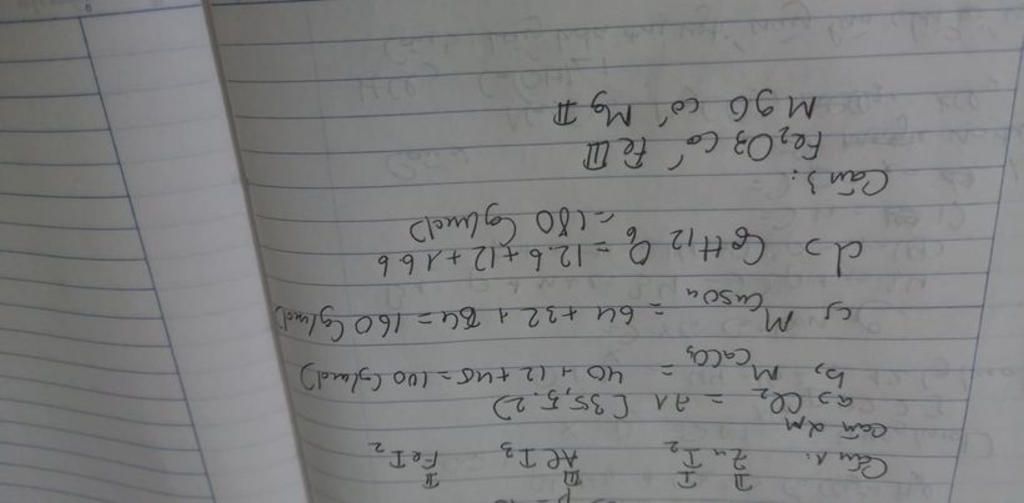 II I III II
Câu 1: ZnI2 AlI3 FeI2
Câu 2 M
a) Cl2 = 71 (35,5.2)
b, M CaCO3 = 40 + 12 + 48 = 100 (g/mol)
c, M CuSO4 = 64 + 32 + 64 = 160 (g/mol)
d) C6H12O6 = 12.6 + 12 + 16 6
= 180 (g/mol)
Câu 3:
Fe2O3 có Fe III
MgO có Mg II